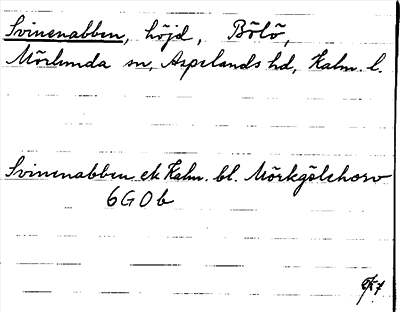 Svinenabben, höjd, Bölö,
Mörlunda sn, Aspelands hd, Kalm. l.
Svinenabben ek Kalm. bl. Mörkgölehorv
6G0b